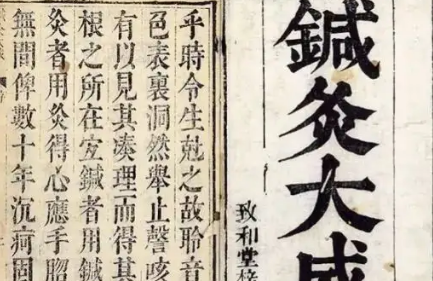 鍼灸大成
致和堂梓
乎時令生尅之故聆音
色表裏洞然舉止謦咳
有以見其凑理而得其
根之所在宜鍼者用鍼
灸者用灸得心應手
無間俾數十年沉疴